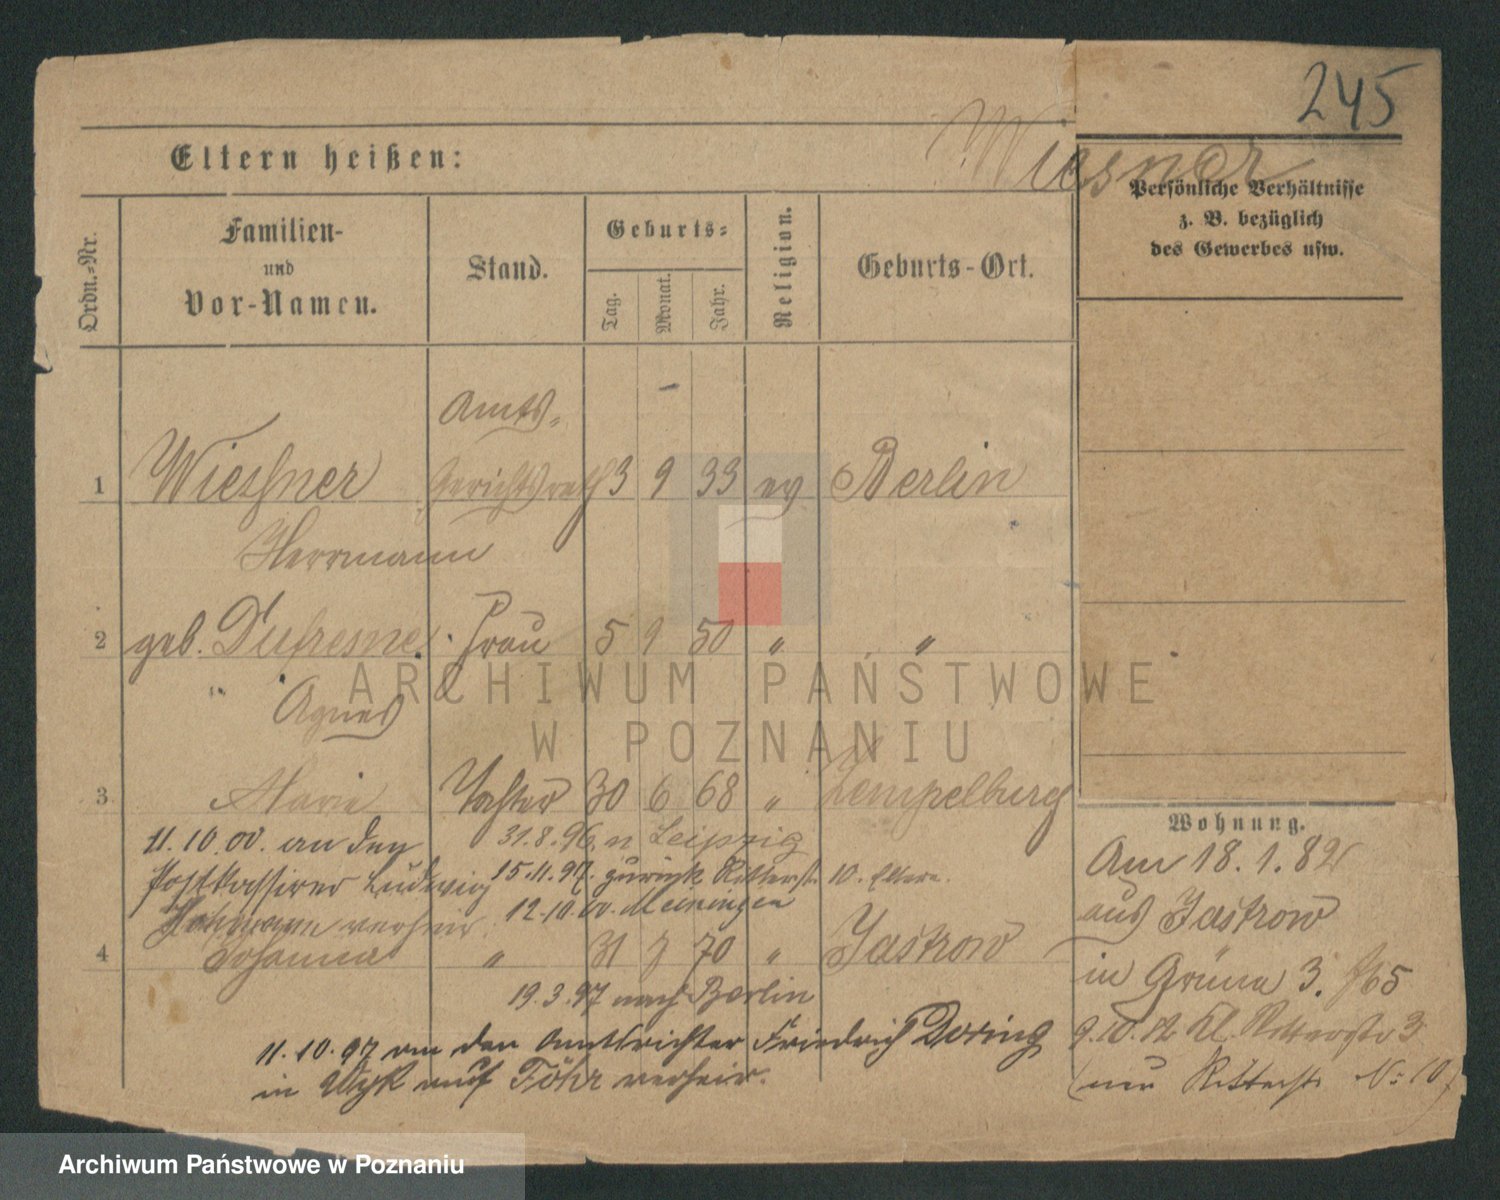 245
Wiesner
Eltern heißen:
Persönliche Verhältnisse
z. B. bezüglich
des Gewerbes usw.
Ordn.-Nr.
Familien-
und
Vor-Namen.
Stand.
Geburts-
Tag.
Monat.
Jahr.
Religion.
Geburts-Ort.
Amts-
1 Wiesner Gerichtsrath 3 9 33 ev Berlin
Herrmann
2 geb. Dufresne. Frau 5 9 50 " "
" " Agnes
3 Marie Tochter 30 6 68 " Zempelburg
11.10.00. an den 31.8.96. n Leipzig
Postkassirer Ludwig 15.11.97. zurück Ritterst. 10. Eltern.
verheir. 12.10.00. Meiningen
4 Johanna " 31 70 " Jastrow
19.3.97 nach Berlin
11.10.97 an den Amtsrichter Friedrich Doring
in Wyk auf Föhr verheir.
Wohnung.
Am 18.1.82
aus Jastrow
in Grüne 3.
9.10.82 Kl. Ritterstr 3
(nur Ritterst No 10)
ARCHIWUM PAŃSTWOWE
W POZNANIU
Archiwum Państwowe w Poznaniu